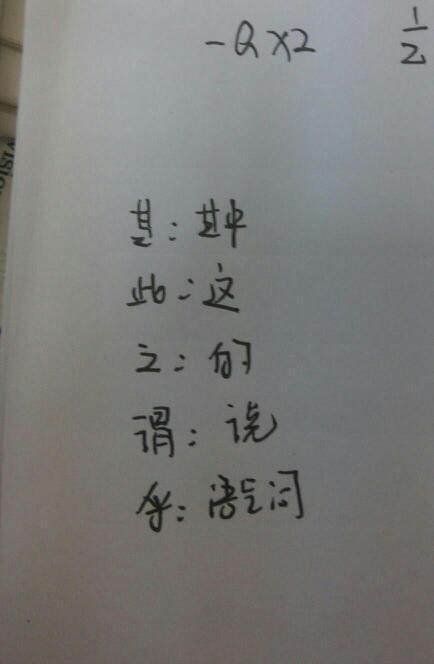 -Q×2 1/2
其：其中
此：这
之：的
谓：说
乎：语气词